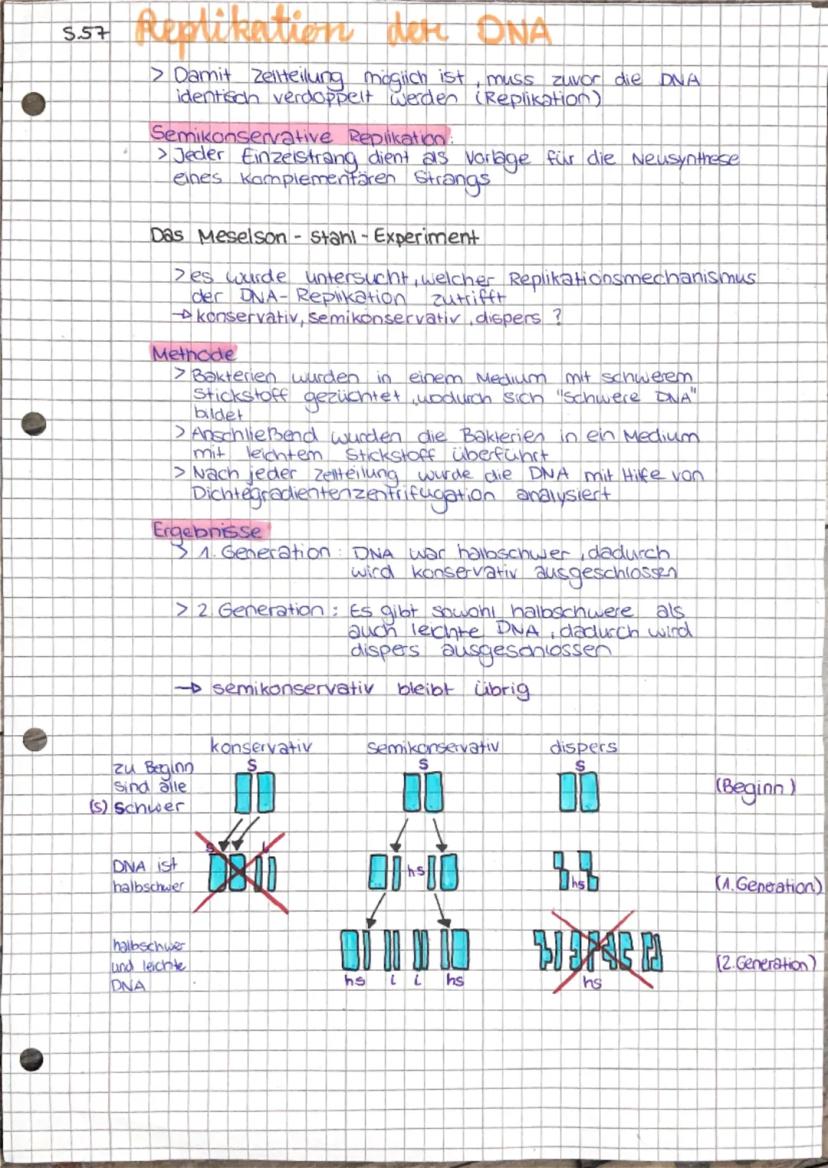 S.57 Replikation der DNA
> Damit Zellteilung möglich ist, muss zuvor die DNA
identisch verdoppelt werden (Replikation)
Semikonservative Replikation:
> Jeder Einzelstrang dient als Vorlage für die Neusynthese
eines komplementären Strangs
Das Meselson-Stahl-Experiment
> es wurde untersucht, welcher Replikationsmechanismus
der DNA-Replikation zutrifft
→ konservativ, semikonservativ, dispers ?
Methode
> Bakterien wurden in einem Medium mit schwerem
Stickstoff gezüchtet, wodurch sich "schwere DNA"
bildet
> Anschließend wurden die Bakterien in ein Medium
mit leichtem Stickstoff überführt
> Nach jeder Zellteilung wurde die DNA mit Hilfe von
Dichtegradientenzentrifugation analysiert
Ergebnisse
> 1. Generation: DNA war halbschwer, dadurch
wird konservativ ausgeschlossen
> 2. Generation: Es gibt sowohl halbschwere als
auch leichte DNA, dadurch wird
dispers ausgeschlossen
→ semikonservativ bleibt übrig
konservativ semikonservativ dispers
zu Beginn S S S
sind alle (Beginn)
(s) schwer
S L
DNA ist hs hs
halbschwer (1. Generation)
halbschwer
und leichte (2. Generation)
DNA hs l l hs hs